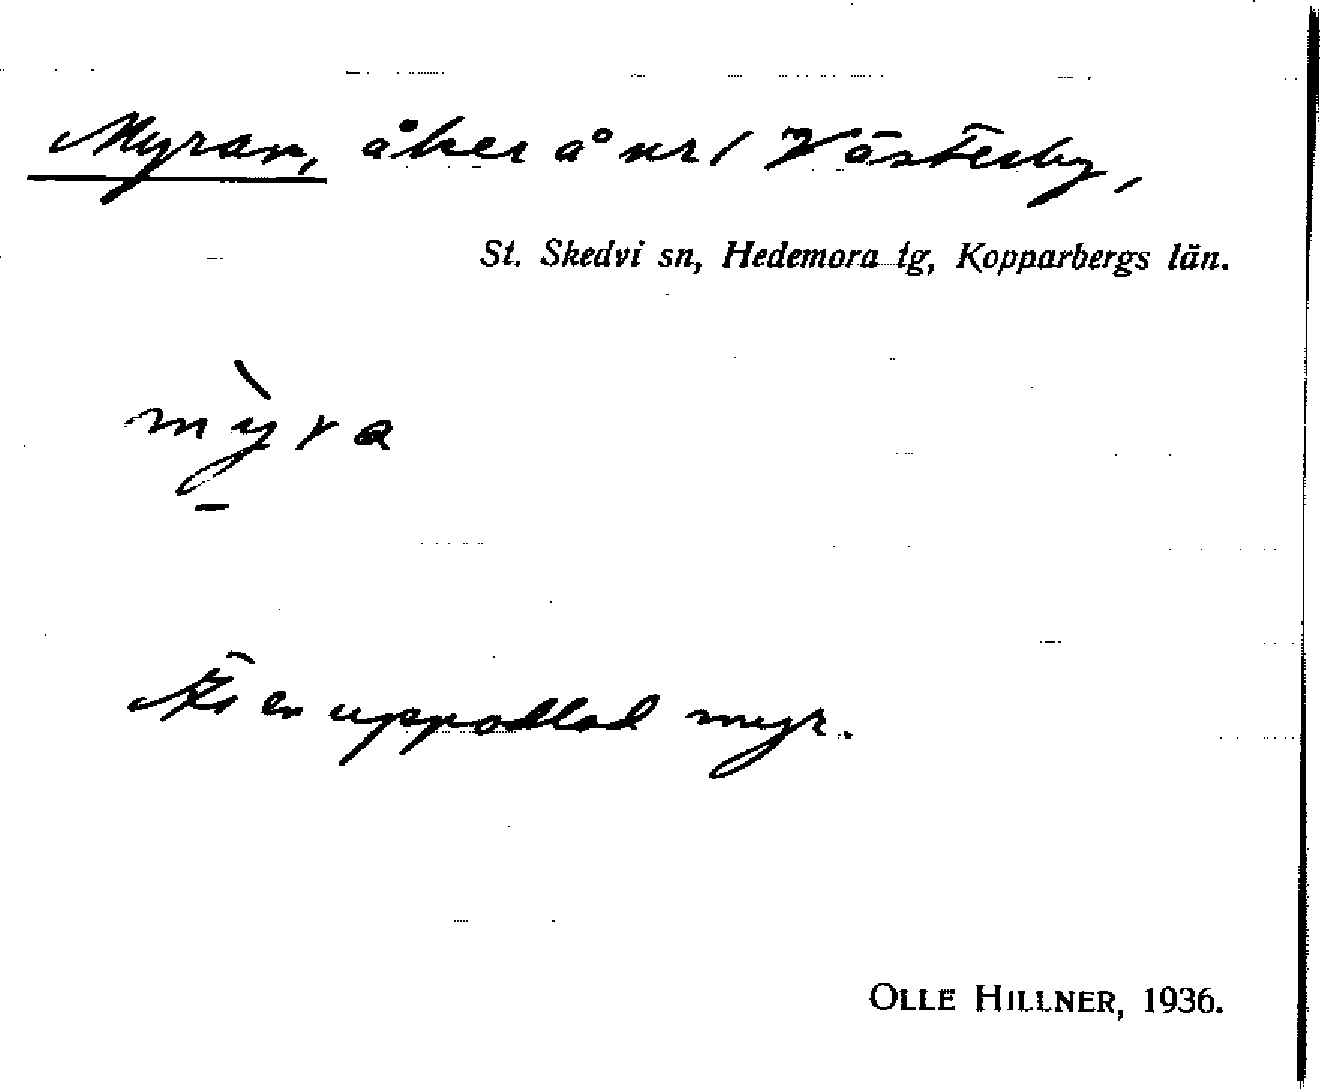 Myran, åker å nr 1 Västerby,
St. Skedvi sn, Hedemora tg, Kopparbergs län.
mỳ̱ra
Är en uppodlad myr.
OLLE HILLNER, 1936.